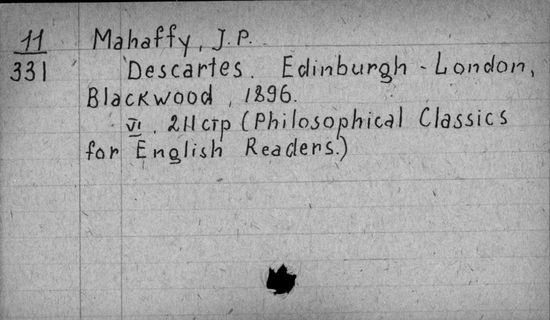 11 Mahaffy, J.P.
331 Descartes. Edinburgh - London,
Blackwood, 1896.
VI. 211 стр (Philosophical Classics
for English Readers.)